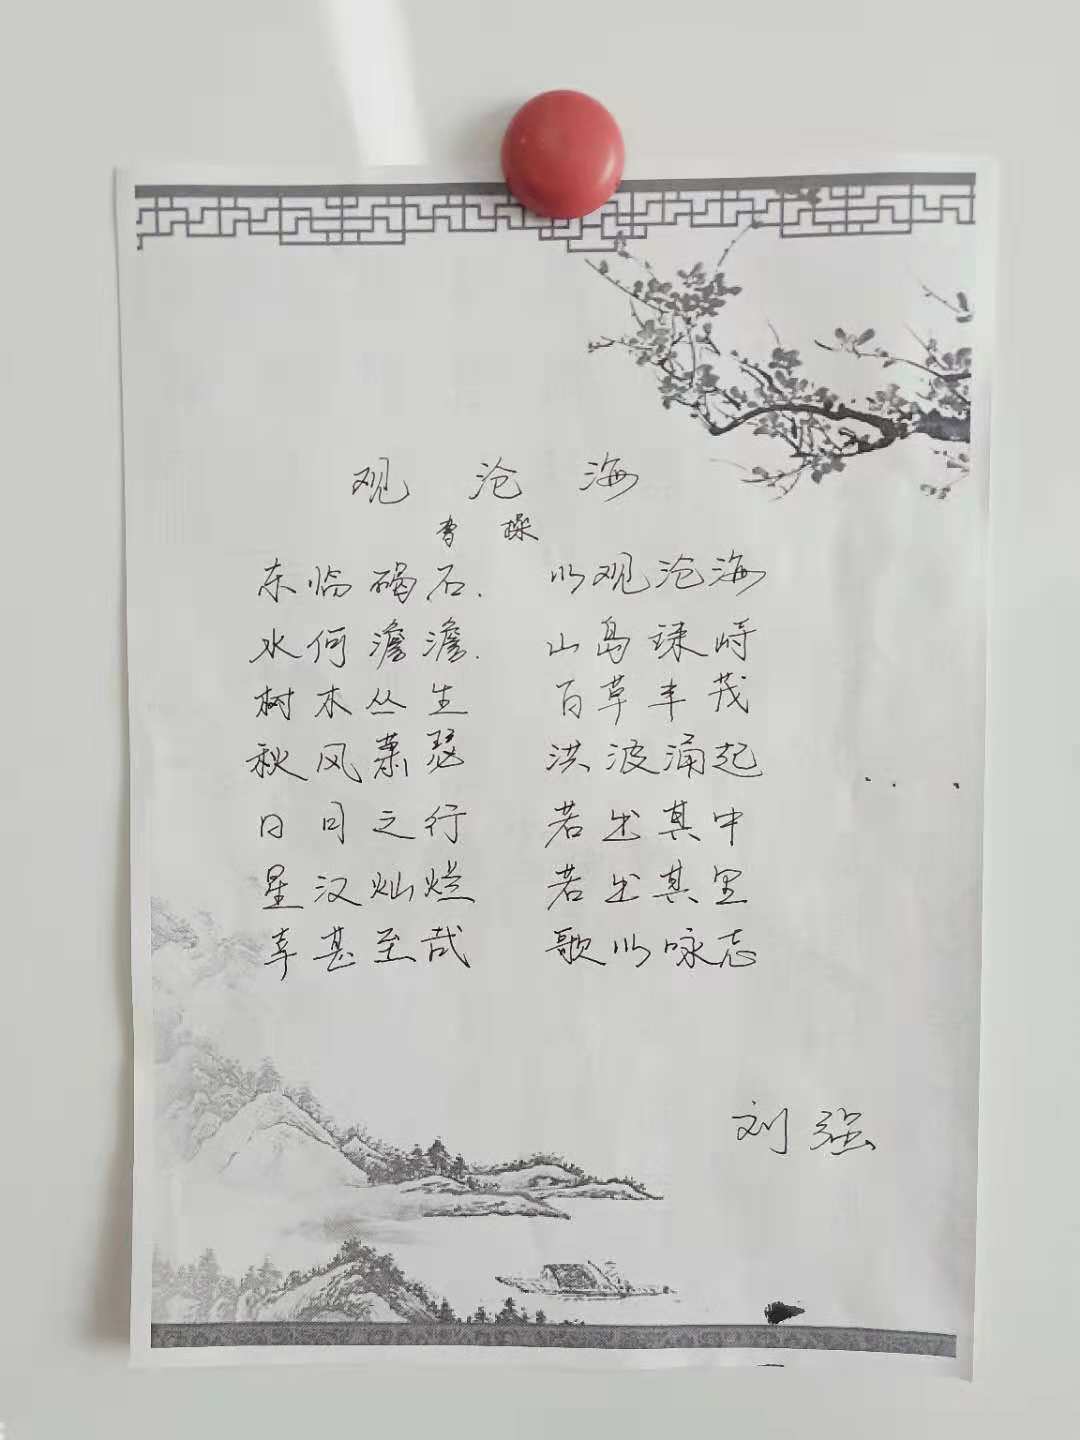 观沧海
曹操
东临碣石. 以观沧海
水何澹澹. 山岛竦峙
树木丛生 百草丰茂
秋风萧瑟 洪波涌起
日月之行 若出其中
星汉灿烂 若出其里
幸甚至哉 歌以咏志
刘强